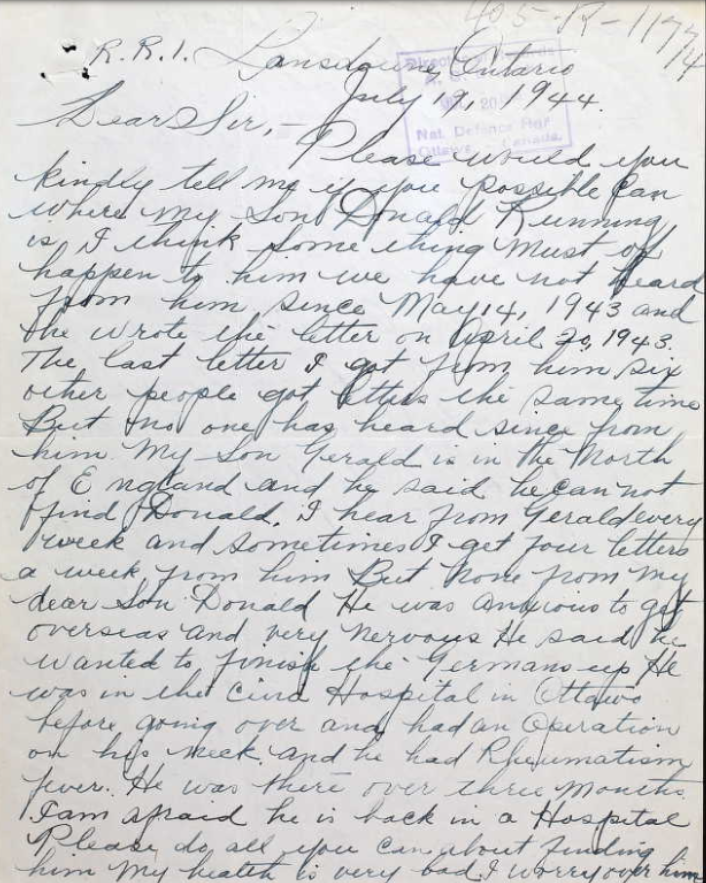 405-R-11774
R.R.1. Lansdowne, Ontario
July 19, 1944.
Dear Sir, -
Please would you
kindly tell me if you possible can
where my Son Donald Running
is I think some thing must of
happen to him we have not heard
from him since May 14, 1943 and
he wrote the letter on April 20, 1943.
The last letter I got from him six
other people got letters the same time
But no one has heard since from
him My Son Gerald is in the North
of England and he said he can not
find Donald. I hear from Gerald every
week and sometimes I get four letters
a week from him But none from my
dear Son Donald He was anxious to get
overseas and very nervous He said he
wanted to finish the Germans up He
was in the Civic Hospital in Ottawa
before going over and had an Operation
on his neck. and he had Rheumatism
fever. He was there over three months.
I am afraid he is back in a Hospital
Please do all you can about finding
him My health is very bad I worry over him
Direct Records
20
Nat. Defence Hqr
Ottawa, Canada.